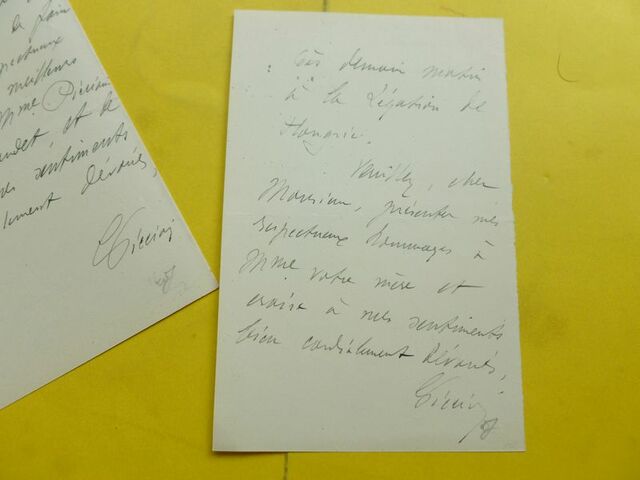 de faire
respectueux
meilleurs
Mme Piccioni
et le
sentiments
dévoués,
Piccioni
dès demain matin
à la Légation de
Hongrie.
Veuillez, cher
Monsieur, présenter mes
respectueux hommages à
Mme votre mère et
croire à mes sentiments
bien cordialement dévoués,
Piccioni